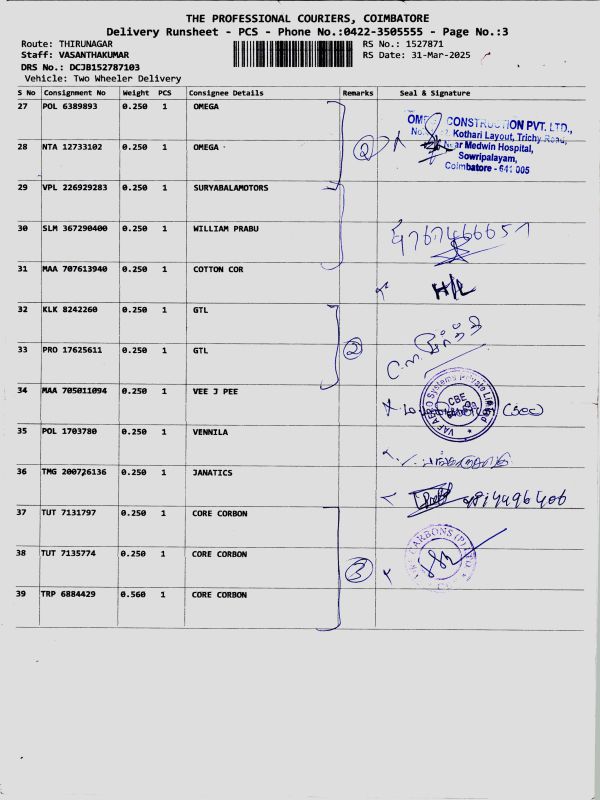 THE PROFESSIONAL COURIERS, COIMBATORE
Delivery Runsheet - PCS - Phone No.:0422-3505555 - Page No.:3
Route: THIRUNAGAR RS No.: 1527871
Staff: VASANTHAKUMAR RS Date: 31-Mar-2025
DRS No.: DCJB152787103
Vehicle: Two Wheeler Delivery
S No Consignment No Weight PCS Consignee Details Remarks Seal & Signature
27 POL 6389893 0.250 1 OMEGA
28 NTA 12733102 0.250 1 OMEGA
2
CONSTRUCTION PVT. LTD.,
Kothari Layout, Trichy Road,
Near Medwin Hospital,
Sowripalayam,
Coimbatore - 641 005
29 VPL 226929283 0.250 1 SURYABALAMOTORS
30 SLM 367290400 0.250 1 WILLIAM PRABU
31 MAA 707613940 0.250 1 COTTON COR
H/L
32 KLK 8242260 0.250 1 GTL
33 PRO 17625611 0.250 1 GTL
2
34 MAA 705011094 0.250 1 VEE J PEE
CBE
35 POL 1703780 0.250 1 VENNILA
36 TMG 200726136 0.250 1 JANATICS
37 TUT 7131797 0.250 1 CORE CORBON
38 TUT 7135774 0.250 1 CORE CORBON
3
CARBONS (P) LTD
39 TRP 6884429 0.560 1 CORE CORBON